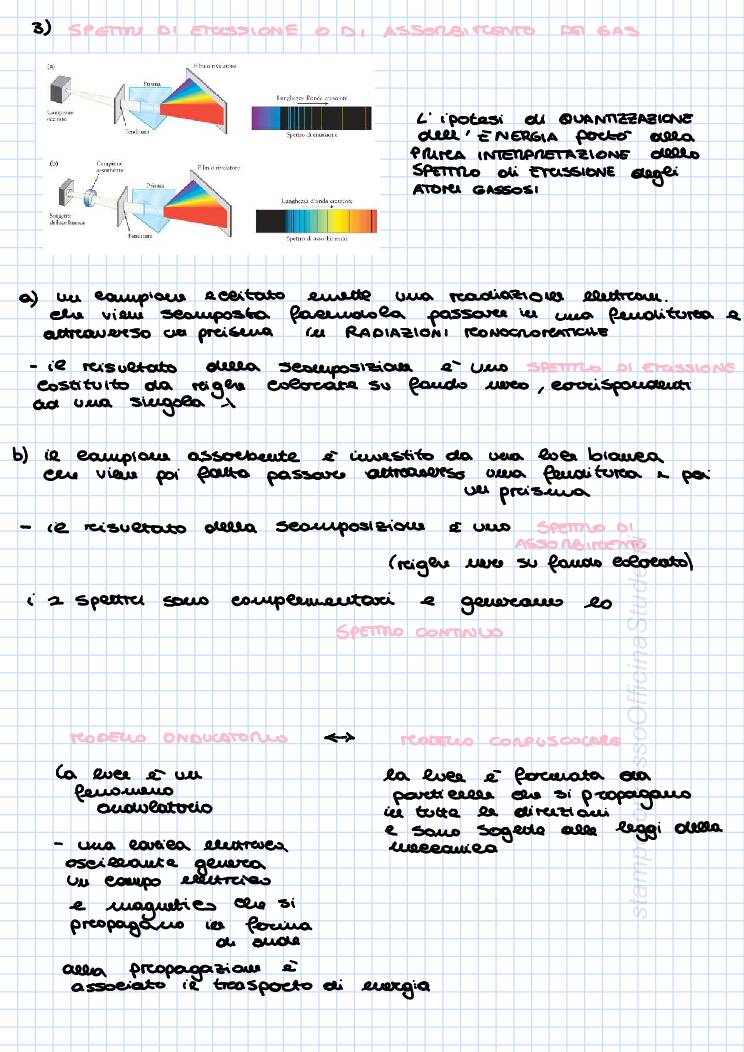 3) SPETTRI DI EMISSIONE O DI ASSORBIMENTO DEI GAS
(a)
Film o rivelatore
Prisma
Campione eccitato
Fenditura
Lunghezza d'onda crescente
Spettro di emissione
(b)
Campione assorbente
Film o rivelatore
Prisma
Sorgente di luce bianca
Fenditura
Lunghezza d'onda crescente
Spettro di assorbimento
L'ipotesi di QUANTIZZAZIONE
dell'ENERGIA portò alla
PRIMA INTERPRETAZIONE dello
SPETTRO di EMISSIONE degli
ATOMI GASSOSI
a) un campione eccitato emette una radiazione elettrom.
che viene scomposta facendola passare in una fenditura e
attraverso un prisma in RADIAZIONI MONOCROMATICHE
- il risultato della scomposizione è uno SPETTRO DI EMISSIONE
costituito da righe colorate su fondo nero, corrispondenti
ad una singola λ
b) il campione assorbente è investito da una luce bianca
che viene poi fatta passare attraverso una fenditura e poi
un prisma
- il risultato della scomposizione è uno SPETTRO DI
ASSORBIMENTO
(righe nere su fondo colorato)
i 2 spettri sono complementari e generano lo
SPETTRO CONTINUO
MODELLO ONDULATORIO ↔ MODELLO CORPUSCOLARE
la luce è un
fenomeno
ondulatorio
- una carica elettrica
oscillante genera
un campo elettrico
e magnetico che si
propagano in forma
di onde
alla propagazione è
associato il trasporto di energia
la luce è formata da
particelle che si propagano
in tutte le direzioni
e sono soggette alle leggi della
meccanica